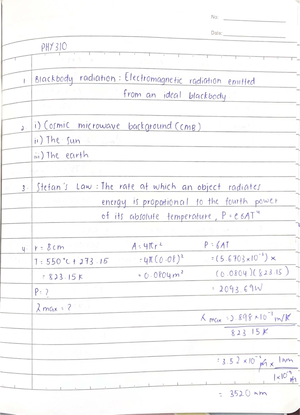 No.
Date
PHY310
1 Blackbody radiation : Electromagnetic radiation emitted
from an ideal blackbody
2 i) Cosmic microwave background (CMB)
ii) The sun
iii) The earth
3 Stefan's Law : The rate at which an object radiates
energy is proportional to the fourth power
of its absolute temperature, P = eσAT⁴
4 r = 8cm A = 4πr² P = σAT
T = 550°C + 273.15 = 4π(0.08)² = (5.6703×10⁻⁸) ×
= 823.15K = 0.0804m² (0.0804)(823.15)
P = ? = 2093.69W
λ max = ?
λ max = 2.898×10⁻³ m/K
823.15K
= 3.52×10⁻⁶ m × 1nm
1×10⁻⁹ m
= 3520 nm